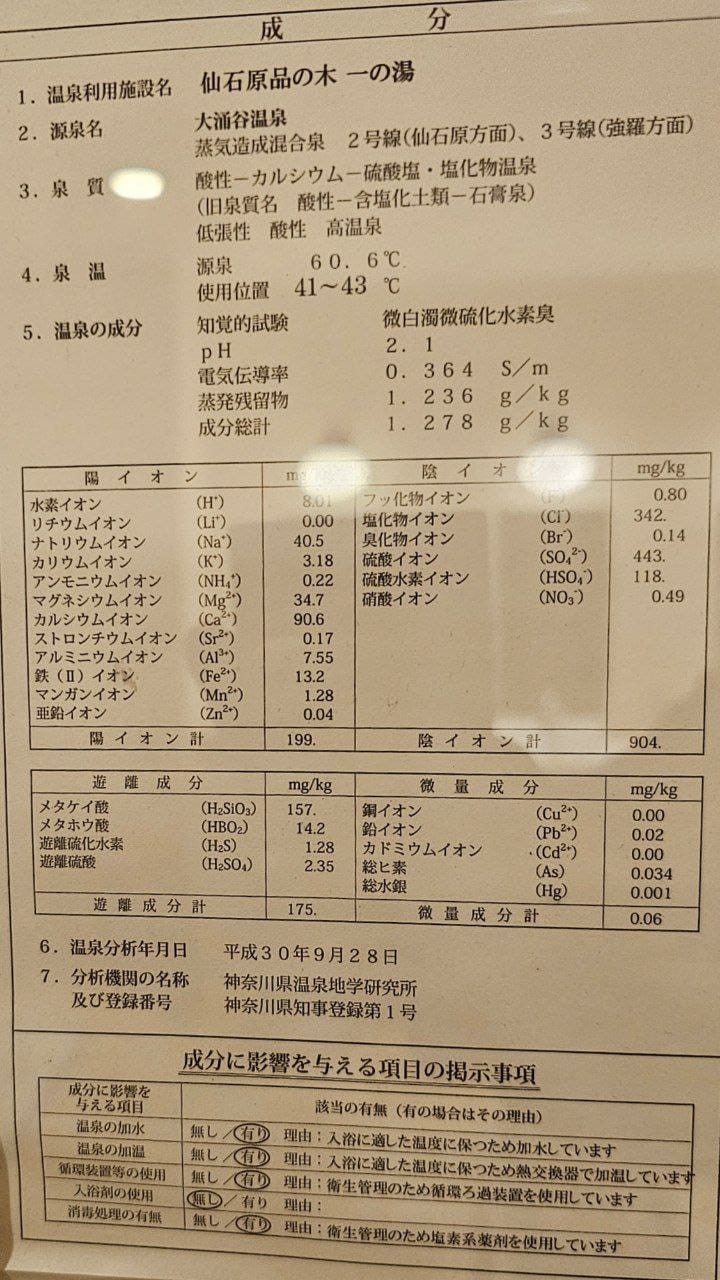 成 分
1．温泉利用施設名 仙石原品の木 一の湯
2．源泉名 大涌谷温泉
蒸気造成混合泉 2号線(仙石原方面)、3号線(強羅方面)
3．泉 質 酸性－カルシウム－硫酸塩・塩化物温泉
(旧泉質名 酸性－含塩化土類－石膏泉)
低張性 酸性 高温泉
4．泉 温 源泉 60．6℃
使用位置 41～43 ℃
5．温泉の成分 知覚的試験 微白濁微硫化水素臭
pH 2．1
電気伝導率 0．364 S／m
蒸発残留物 1．236 g／kg
成分総計 1．278 g／kg
陽イオン mg/kg 陰イオン mg/kg
水素イオン (H⁺) 8.01 フッ化物イオン (F⁻) 0.80
リチウムイオン (Li⁺) 0.00 塩化物イオン (Cl⁻) 342.
ナトリウムイオン (Na⁺) 40.5 臭化物イオン (Br⁻) 0.14
カリウムイオン (K⁺) 3.18 硫酸イオン (SO₄²⁻) 443.
アンモニウムイオン (NH₄⁺) 0.22 硫酸水素イオン (HSO₄⁻) 118.
マグネシウムイオン (Mg²⁺) 34.7 硝酸イオン (NO₃⁻) 0.49
カルシウムイオン (Ca²⁺) 90.6
ストロンチウムイオン (Sr²⁺) 0.17
アルミニウムイオン (Al³⁺) 7.55
鉄（Ⅱ）イオン (Fe²⁺) 13.2
マンガンイオン (Mn²⁺) 1.28
亜鉛イオン (Zn²⁺) 0.04
陽イオン計 199. 陰イオン計 904.
遊離成分 mg/kg 微量成分 mg/kg
メタケイ酸 (H₂SiO₃) 157. 銅イオン (Cu²⁺) 0.00
メタホウ酸 (HBO₂) 14.2 鉛イオン (Pb²⁺) 0.02
遊離硫化水素 (H₂S) 1.28 カドミウムイオン (Cd²⁺) 0.00
遊離硫酸 (H₂SO₄) 2.35 総ヒ素 (As) 0.034
総水銀 (Hg) 0.001
遊離成分計 175. 微量成分計 0.06
6．温泉分析年月日 平成30年9月28日
7．分析機関の名称 神奈川県温泉地学研究所
及び登録番号 神奈川県知事登録第1号
成分に影響を与える項目の掲示事項
成分に影響を
与える項目 該当の有無（有の場合はその理由）
温泉の加水 無し／有り 理由：入浴に適した温度に保つため加水しています
温泉の加温 無し／有り 理由：入浴に適した温度に保つため熱交換器で加温しています
循環装置等の使用 無し／有り 理由：衛生管理のため循環ろ過装置を使用しています
入浴剤の使用 無し／有り 理由：
消毒処理の有無 無し／有り 理由：衛生管理のため塩素系薬剤を使用しています